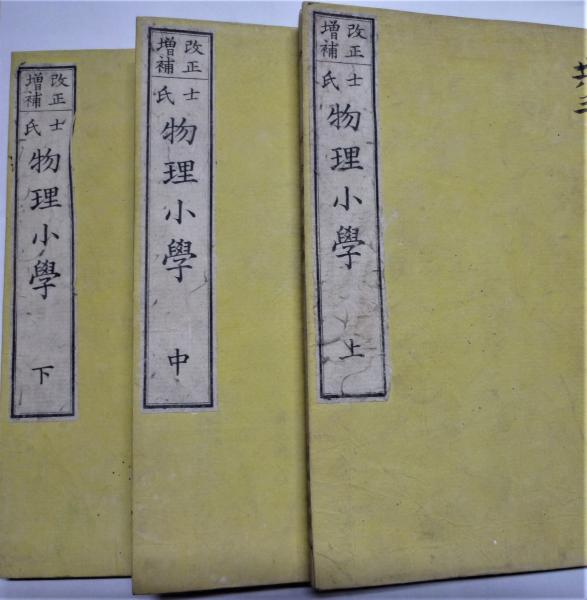 共三
改正
増補
士氏
物理小學
上
改正
増補
士氏
物理小學
中
改正
増補
士氏
物理小學
下